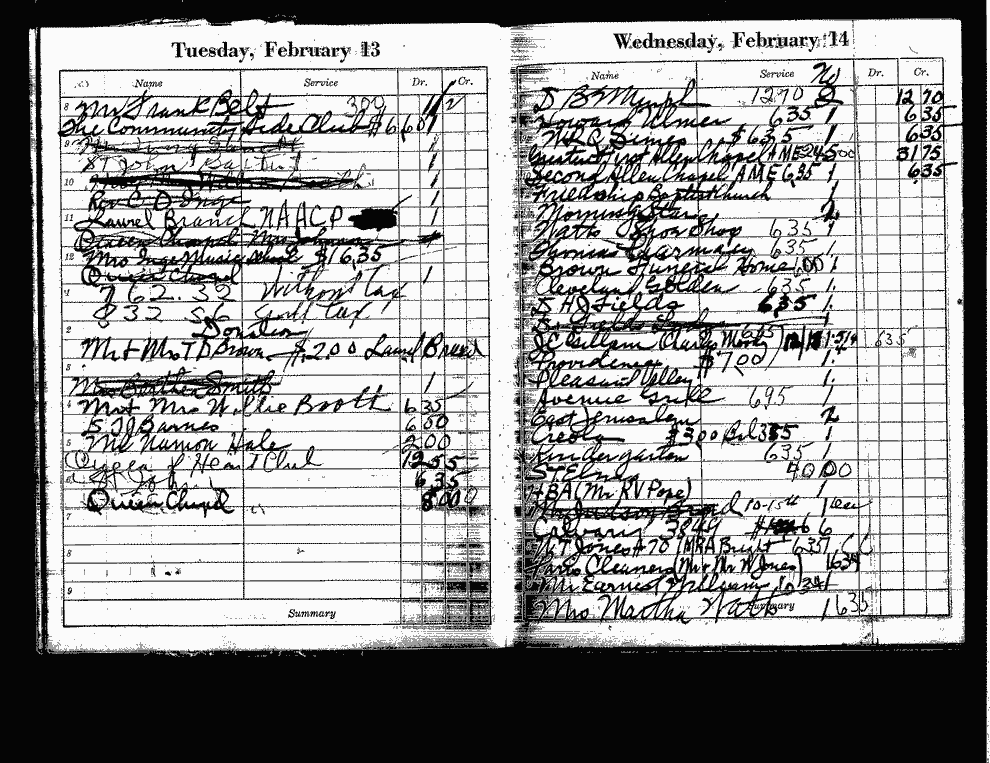 Tuesday, February 13
Name Service Dr. Cr.
8 Mr Frank Belt 300 1/2
The Community Side Club $6.60 1
9 Mr Ivory Garrett 1
St John Baptist 1
10 1
Rev C. O. Inge 1
11 Laurel Branch NAACP 1
Queen Chapel Mrs Johnson
12 Mrs Inge Music $16.35
Queen Chapel 1
1 762.32 Without Tax
832 56 Tax
2 Donation
Mr + Mrs T D Brown $2.00 Laurel Branch
3
Mrs Bertha Smith 1
4 Mr + Mrs Willie Booth 635
S J Barnes 600
5 Mr Namon Hale 200
Queen of Heart Club 1255
6 St John 635
Queen Chapel 800
7
8
9
Summary
Wednesday, February 14
Name Service No Dr. Cr.
1270 2 1270
Howard Ulmer 635 1 635
Mr Q Simes $635 1 635
Greater First Allen Chapel AME 5 3175
Second Allen Chapel AME 635 1 635
Friendship Baptist Church
Morning Star 2
Watts Shoe Shop 635 1
Thomas Pharmacy 635 1
Brown Funeral Home 600 1
Cleveland Golden 635 1
S H J Fields 635 1
J C Gillam Charley Moody 635
Providence $7.00 1
Pleasant Valley 1
Avenue Grill 695
East Jerusalem 2
Creola $3.00 Bal 335 1
Kindergarten 635 1
St Elmo 4000
HBA (Mr RV Pope) 1
10-15th
Calvary 3849 6
N.T Jones 635 1
Paris Cleaners (Mr + Mr W Jones) 1 634
Mr Earnest Williams
Mrs Martha Watts 1 635
Summary